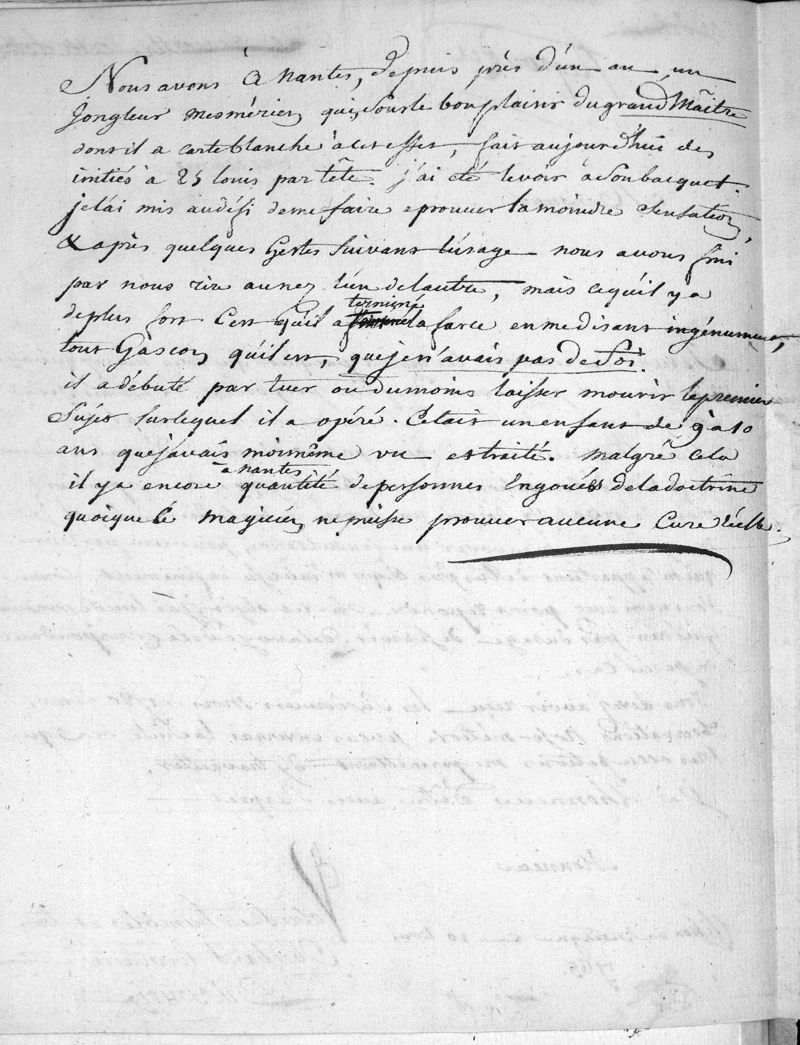 Nous avons à nantes, depuis près d'un an un
jongleur mesmérien, qui, sous le bon plaisir du grand Maître
dont il a carte blanche à cet effet, fait aujourd'hui des
initiés à 25 louis par tête. j'ai été le voir à son bacquet.
je l'ai mis au défi de me faire eprouver la moindre sensation,
& après quelques gestes suivant l'usage nous avons fini
par nous rire au nez l'un de l'autre, mais ce qu'il y a
terminé
de plus fort c'est qu'il a la farce en me disant ingénument,
tout Gascon qu'il est, que je n'avais pas de foi.
il a débuté par tuer ou du moins laisser mourir le premier
sujet sur lequel il a opéré. C'etait un enfant de 9 à 10
ans que j'avais moi même vu et traité. malgré cela
à nantes
il y a encore quantité de personnes engoués de la doctrine
quoique le magicien ne puisse prouver aucune cure réelle.